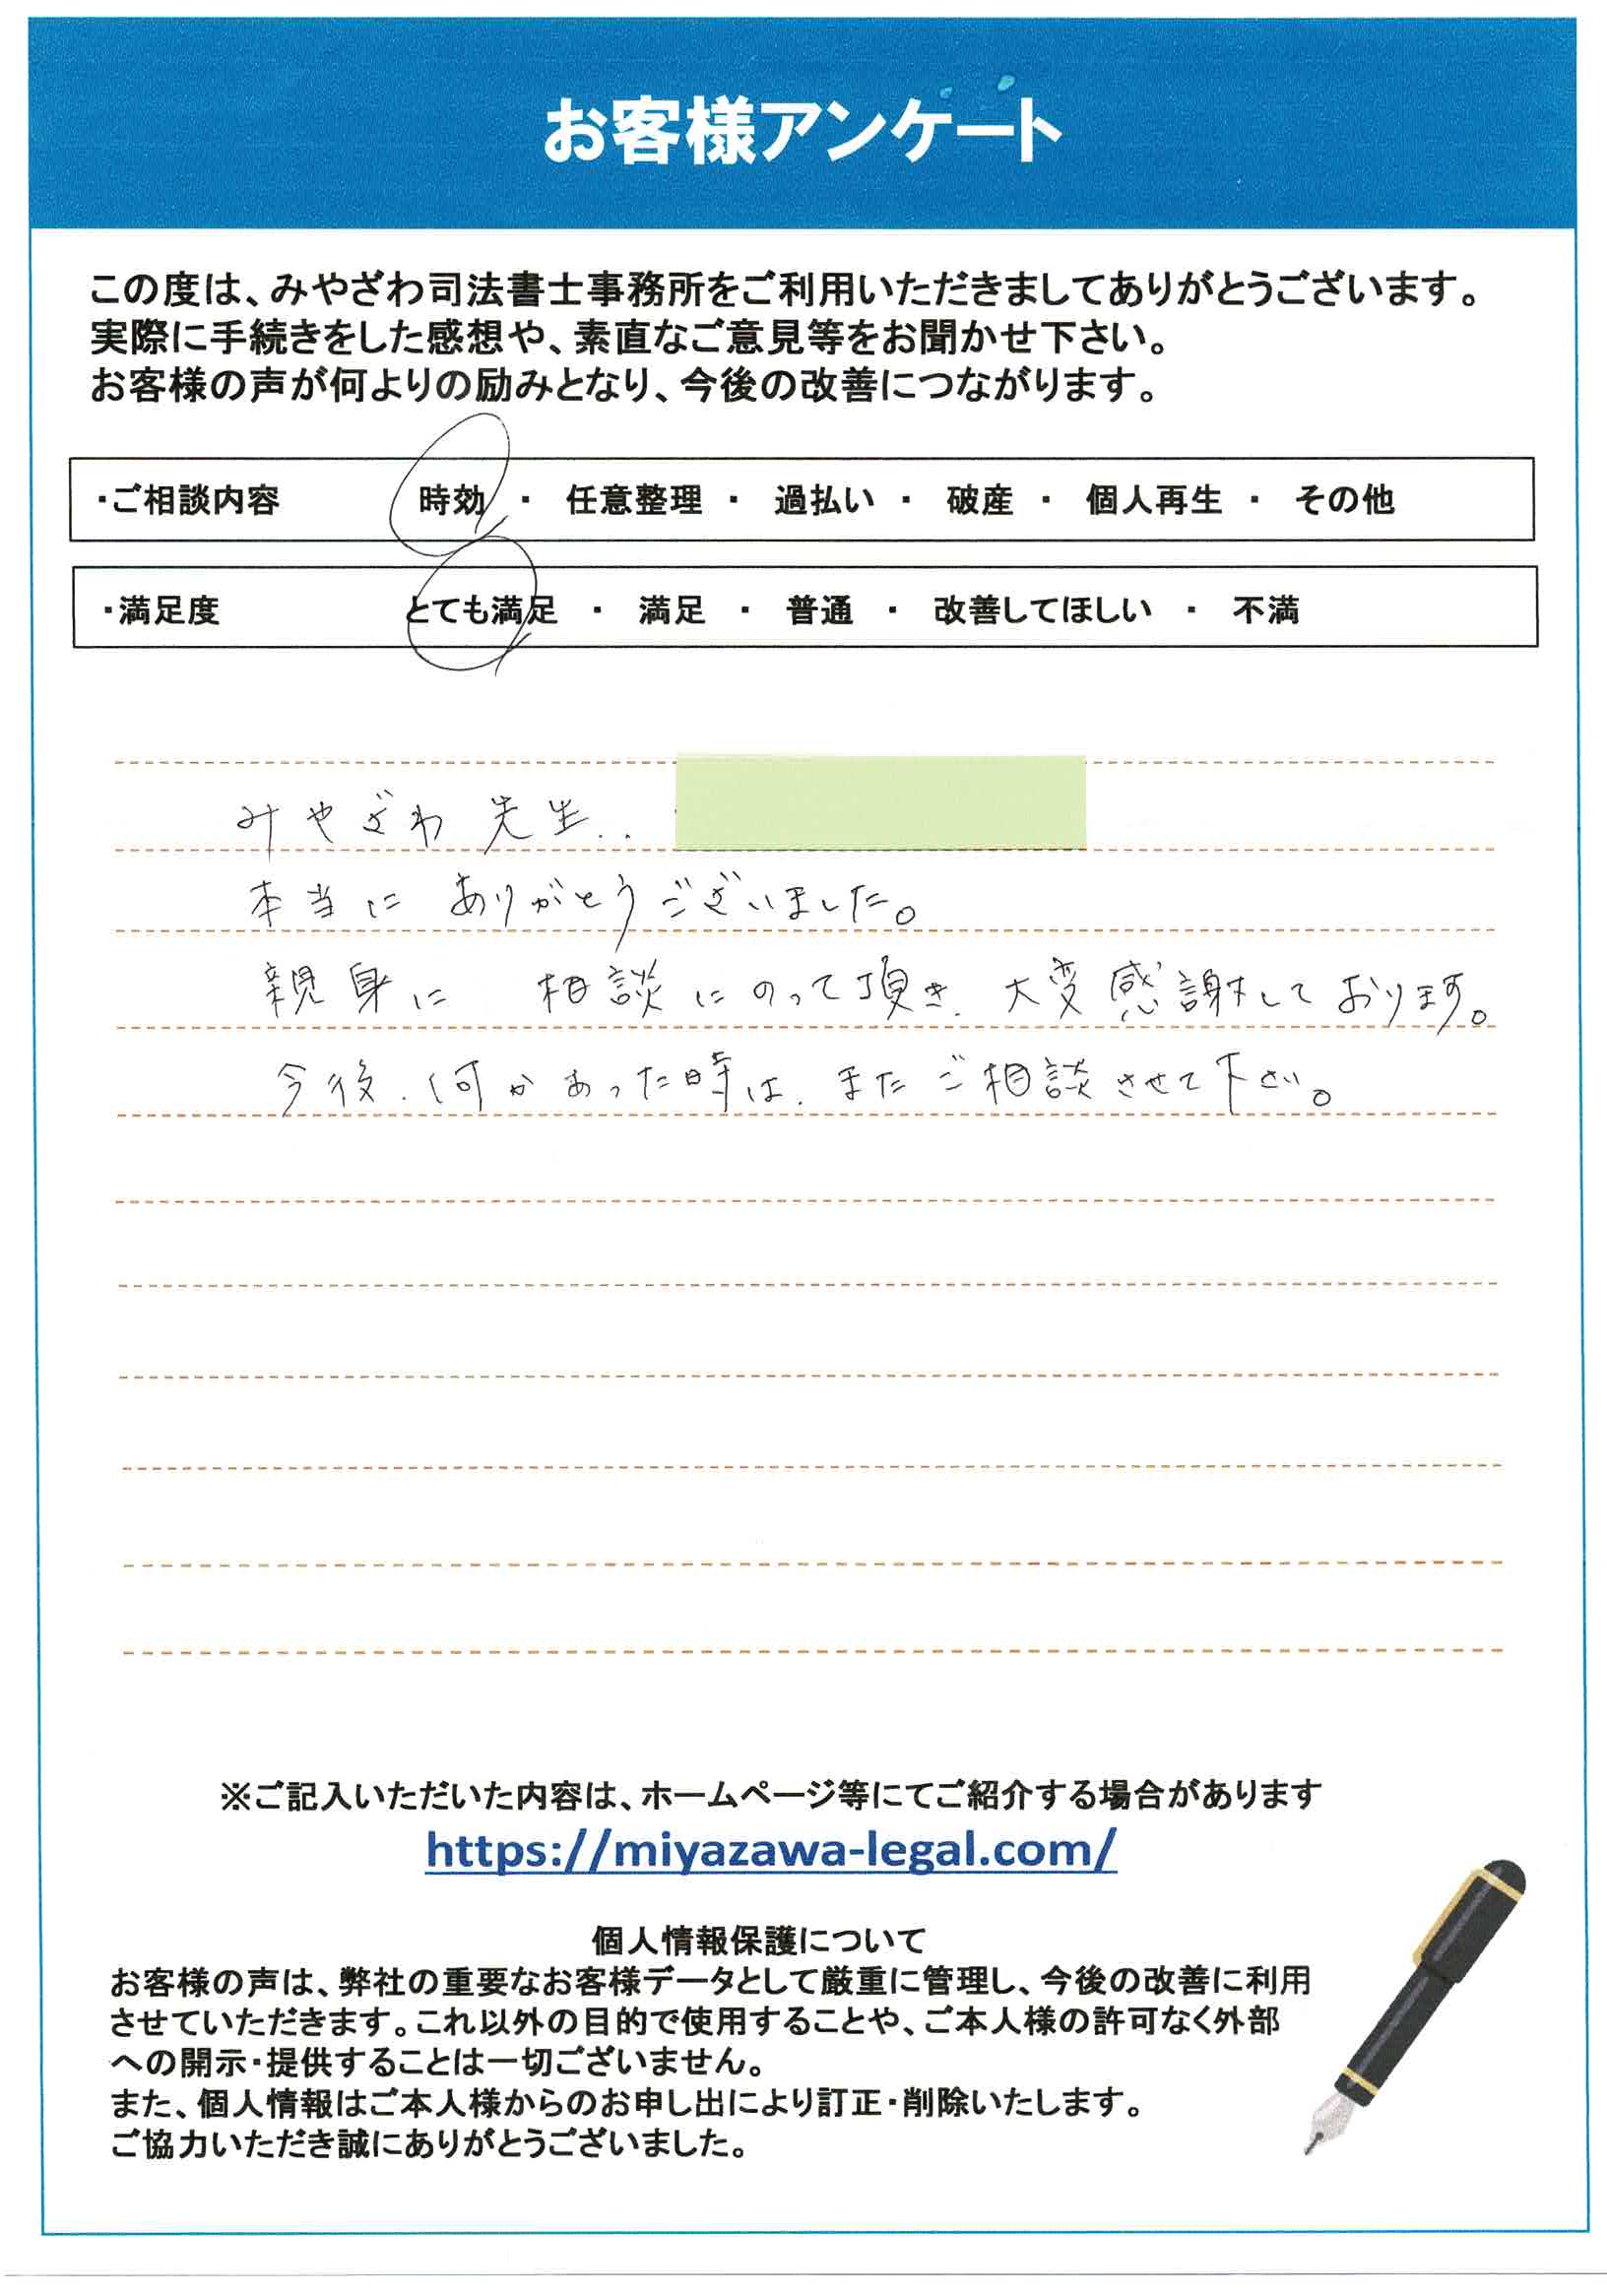 お客様アンケート
この度は、みやざわ司法書士事務所をご利用いただきましてありがとうございます。
実際に手続きをした感想や、素直なご意見等をお聞かせ下さい。
お客様の声が何よりの励みとなり、今後の改善につながります。
・ご相談内容 時効 ・ 任意整理 ・ 過払い ・ 破産 ・ 個人再生 ・ その他
・満足度 とても満足 ・ 満足 ・ 普通 ・ 改善してほしい ・ 不満
みやざわ先生..
本当にありがとうございました。
親身に 相談にのって頂き、大変感謝しております。
今後、何かあった時は、またご相談させて下さい。
※ご記入いただいた内容は、ホームページ等にてご紹介する場合があります
https://miyazawa-legal.com/
個人情報保護について
お客様の声は、弊社の重要なお客様データとして厳重に管理し、今後の改善に利用
させていただきます。これ以外の目的で使用することや、ご本人様の許可なく外部
への開示・提供することは一切ございません。
また、個人情報はご本人様からのお申し出により訂正・削除いたします。
ご協力いただき誠にありがとうございました。